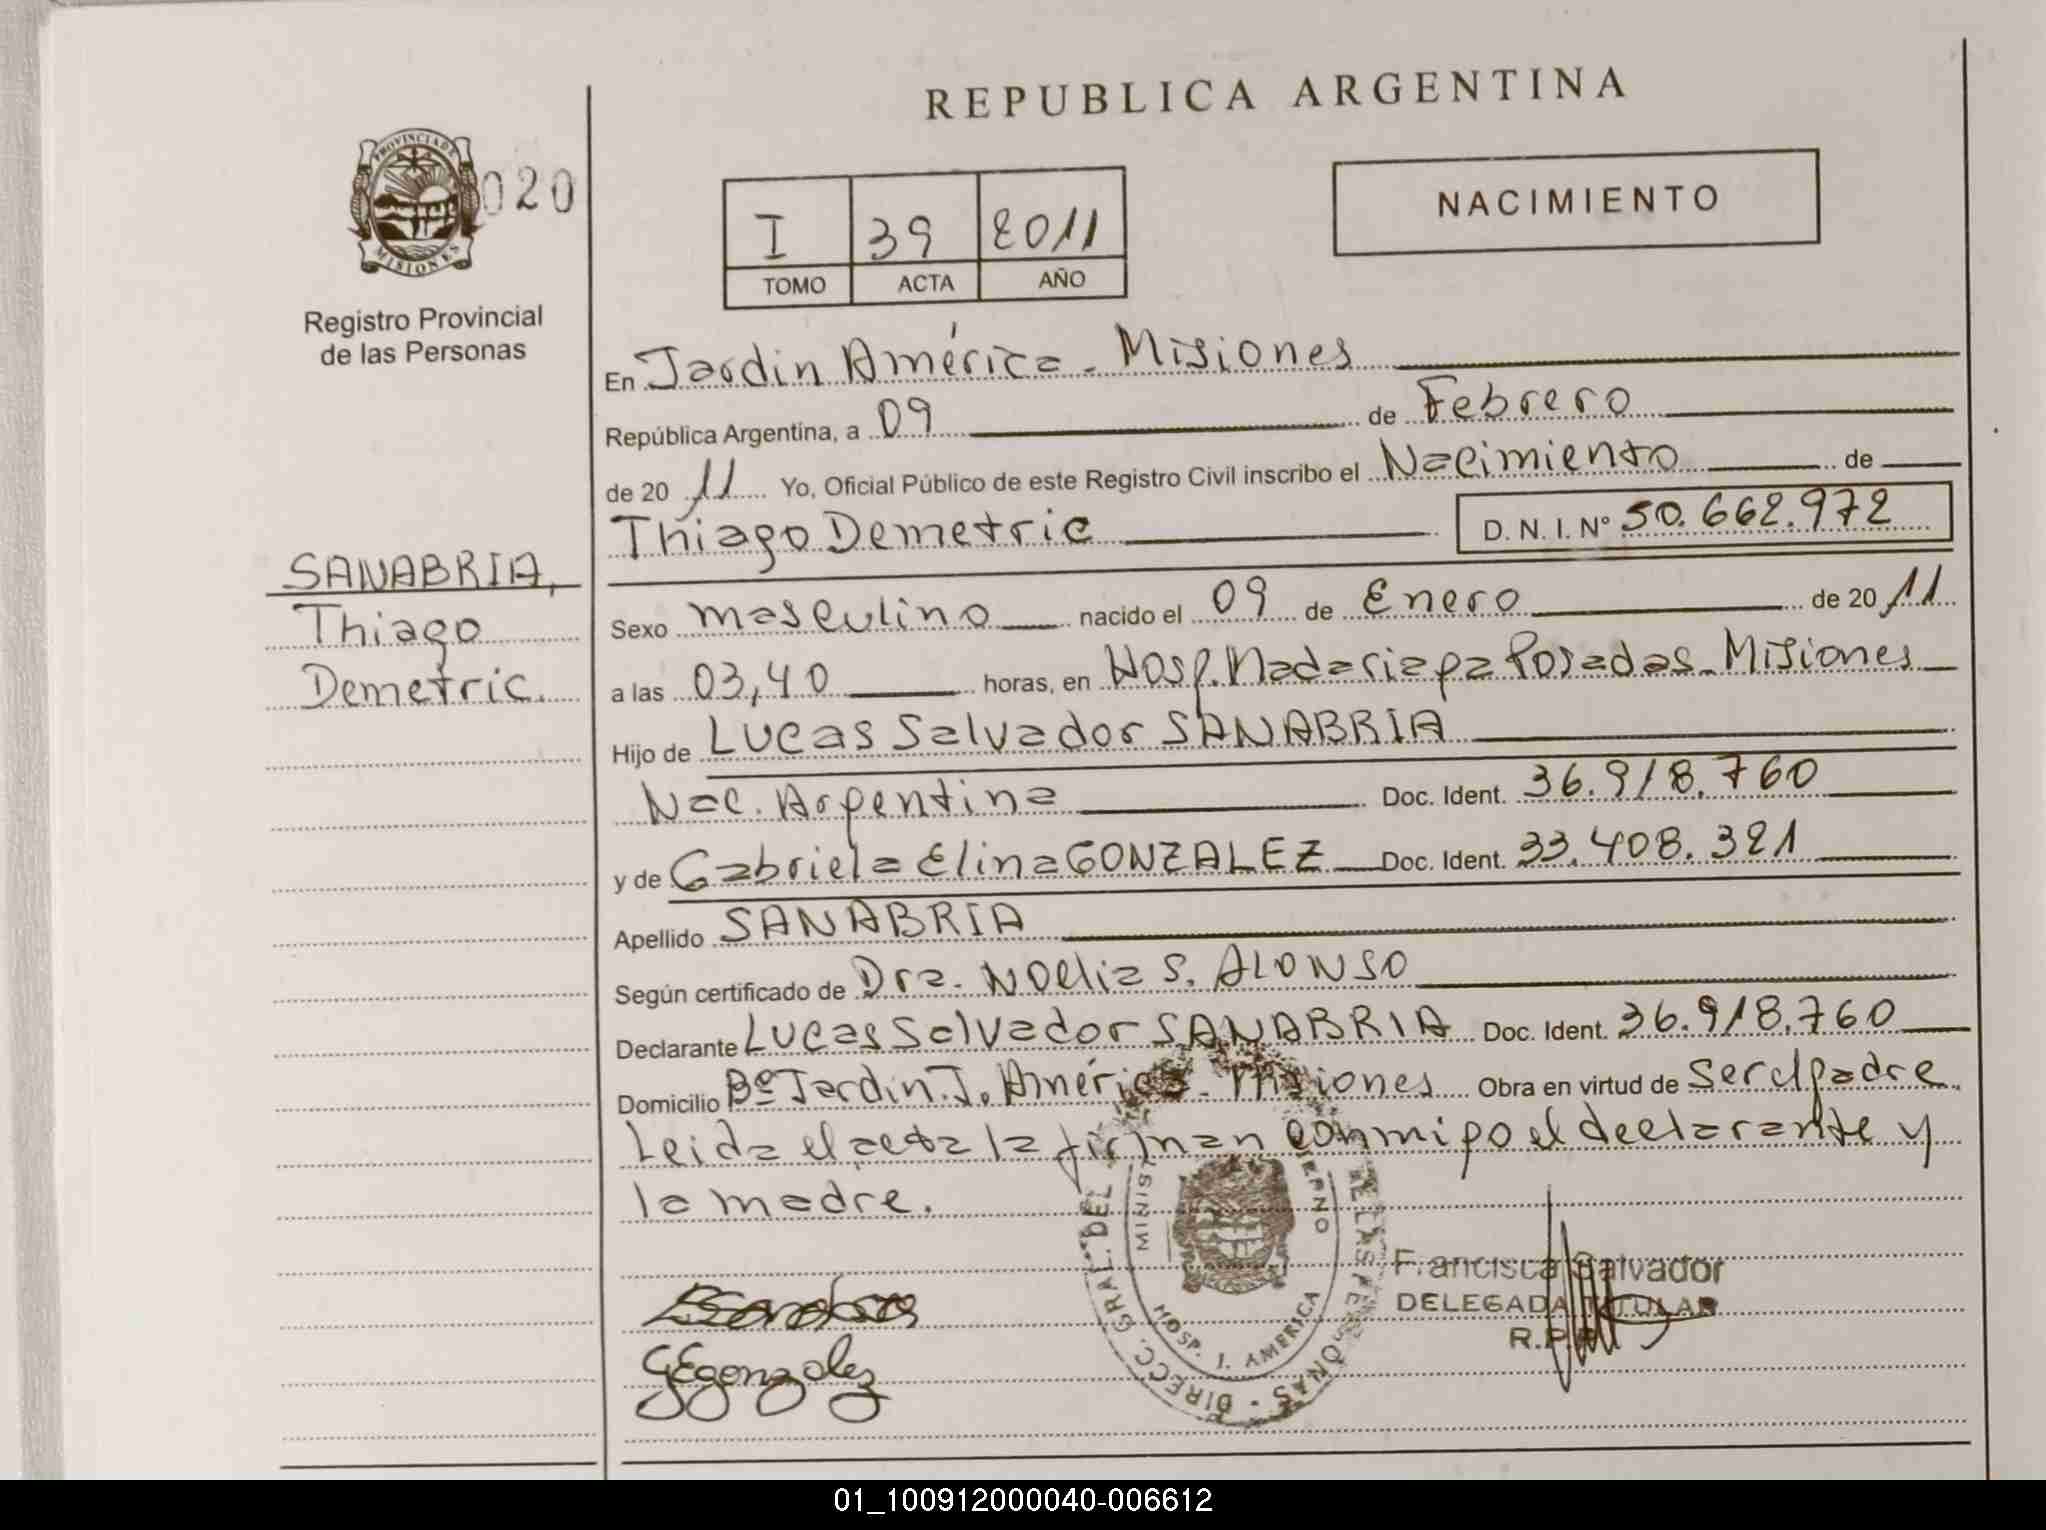 REPUBLICA ARGENTINA
PROVINCIA DE
MISIONES
020
Registro Provincial
de las Personas
I 39 2011
TOMO ACTA AÑO
NACIMIENTO
En Jardin América - Misiones
República Argentina, a 09 de Febrero
de 20 11 Yo, Oficial Público de este Registro Civil inscribo el Nacimiento de
Thiago Demetric D. N. I. N° 50.662.972
SANABRIA,
Thiago
Demetric.
Sexo masculino nacido el 09 de Enero de 20 11
a las 03,40 horas, en Hosp. Madariaga Posadas - Misiones
Hijo de Lucas Salvador SANABRIA
Nac. Argentina Doc. Ident. 36.918.760
y de Gabriela Elina GONZALEZ Doc. Ident. 33.408.321
Apellido SANABRIA
Según certificado de Dra. Noelia S. ALONSO
Declarante Lucas Salvador SANABRIA Doc. Ident. 36.918.760
Domicilio Bº Jardin. J. América - Misiones Obra en virtud de Ser el padre
Leida el acta la firman conmigo el declarante y
la madre.
DIRECC. GRAL. DEL DE LAS PERSONAS
HOSP. J. AMERICA
Francisca Salvador
DELEGADA TITULAR
R.P.P.
GEgonzalez
01_100912000040-006612